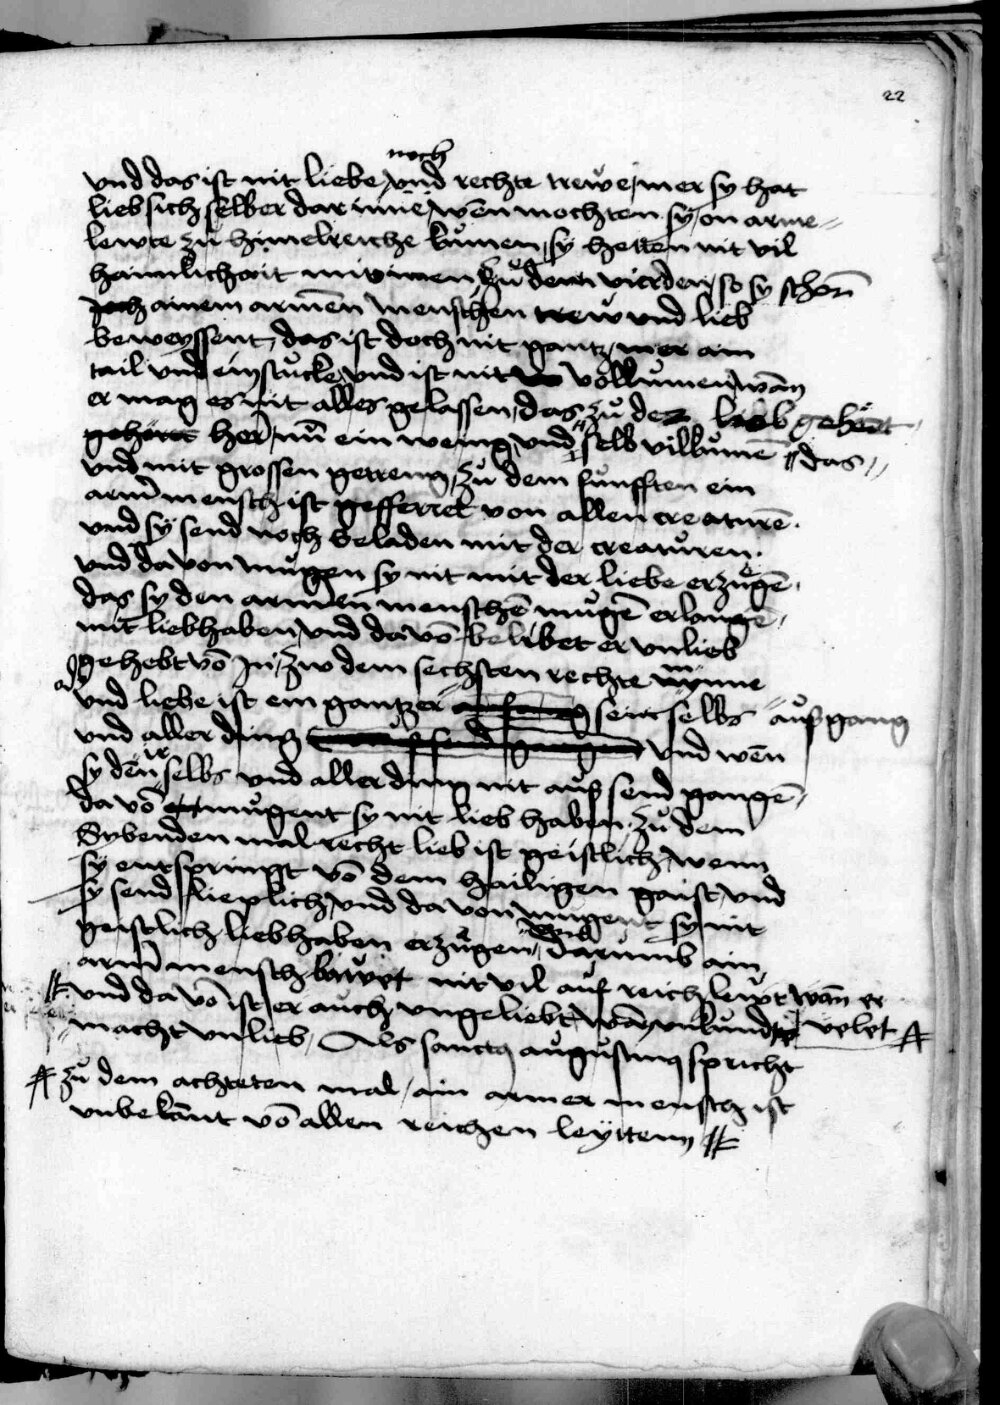 22
noch
vnd das ist nit liebe / vnd rechte trewe / mer sy hat
lieb sich selber dar inne / wen mochten sy / on arme
lewte zů himelreiche kumen / sy hetten nit vil
haimlichait mit inen / Zů dem vierden / so sy schon
joch ainem armen menschen trew vnd lieb
beweyssent / das ist doch nit gantz / mer ain
tail vnd ein stucke / vnd ist nit volkumen / wann
er mag es nit alles gelassen / das zů der lieb gehört
gehöret her / nu ein wenig vnd selb vilkumē das
vnd mit grossen getreng / zů dem funfften ein
arm mensch ist gefferret von allen creaturē .
vnd sy send noch beladen mit der creaturen .
vnd da von mugen sy nit mit der liebe erzugē .
das sy den armen menschē mugē erlangē /
mit liebhaben / vnd da vō belibet er vnlieb
gehebt vō in / Zw dem sechsten rechte mynne
vnd liebe ist ein gantzer sein selbs außgang
vnd aller ding vnd wen
sy den ir selbs vnd aller ding nit auß send gangē /
da vō mugent sy nit lieb haben . Zů dem
Sybenden mal recht lieb ist geistlich / wenn
sy entspringt vō dem hailigen gaist / vnd
sy send lieplich / vnd da von mugent sy nit
geistlich liebhaben erzugen / darumb ain
arm mensch bawet nit vil auf reich lewt wan er
vnd da vō ist er auch vngeliebt / wan vnkund velet
macht vnlieb / Als sanctus augustinus spricht
zů dem achteten mal / ain armer mensch ist
vnbekant vō allen reichen leyttenn